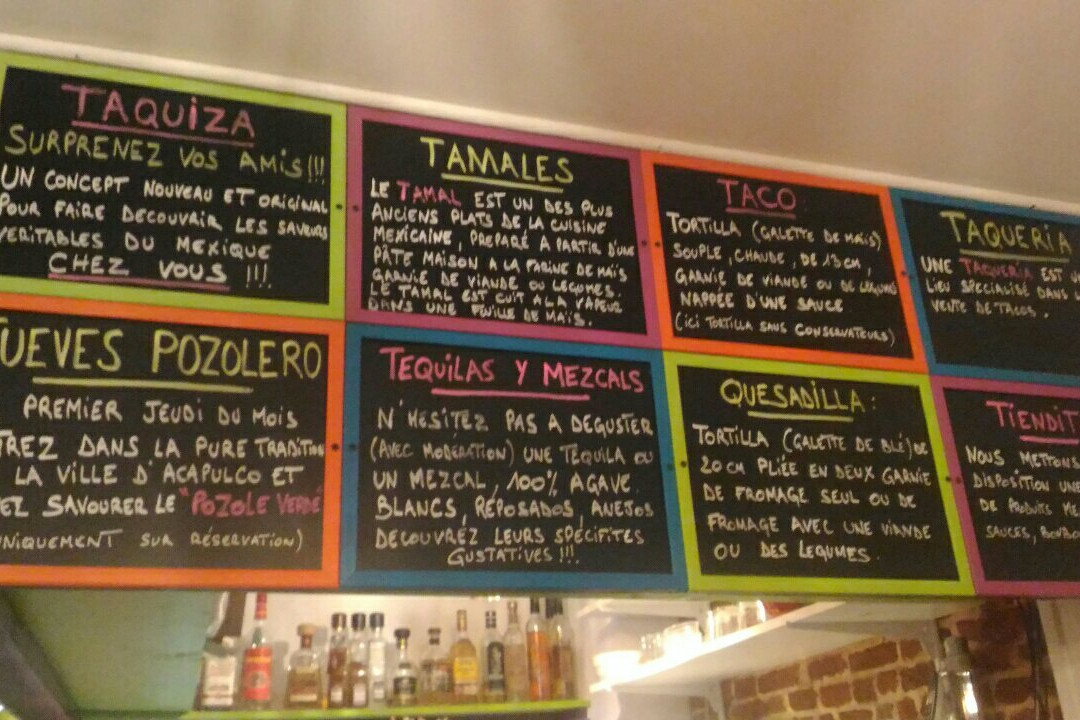 TAQUIZA
SURPRENEZ VOS AMIS!!!
UN CONCEPT NOUVEAU ET ORIGINAL
POUR FAIRE DECOUVRIR LES SAVEURS
VERITABLES DU MEXIQUE
CHEZ VOUS !!!
TAMALES
LE TAMAL EST UN DES PLUS
ANCIENS PLATS DE LA CUISINE
MEXICAINE, PREPARÉ A PARTIR D'UNE
PÂTE MAISON A LA FARINE DE MAÏS
GARNIE DE VIANDE OU LEGUMES.
LE TAMAL EST CUIT A LA VAPEUR
DANS UNE FEUILLE DE MAÏS.
TACO
TORTILLA (GALETTE DE MAÏS)
SOUPLE, CHAUDE, DE 13 CM,
GARNIE DE VIANDE OU DE LÉGUMES
NAPPÉE D'UNE SAUCE
(ICI TORTILLA SANS CONSERVATEURS)
TAQUERIA
UNE TAQUERIA EST U
LIEU SPECIALISÉ DANS L
VENTE DE TACOS.
UEVES POZOLERO
PREMIER JEUDI DU MOIS
TREZ DANS LA PURE TRADITION
LA VILLE D'ACAPULCO ET
EZ SAVOURER LE "POZOLE VERDE
UNIQUEMENT SUR RÉSERVATION)
TEQUILAS Y MEZCALS
N'HESITEZ PAS A DEGUSTER
(AVEC MODÉRATION) UNE TEQUILA OU
UN MEZCAL, 100% AGAVE
BLANCS, RÉPOSADOS, AÑEJOS
DECOUVREZ LEURS SPÉCIFITES
GUSTATIVES !!!
QUESADILLA:
TORTILLA (GALETTE DE BLÉ) DE
20 CM PLIÉE EN DEUX GARNIE
DE FROMAGE SEUL OU DE
FROMAGE AVEC UNE VIANDE
OU DES LEGUMES.
TIENDIT
NOUS METTONS
DISPOSITION UNE
DE PRODUITS ME
SAUCES, BONBO